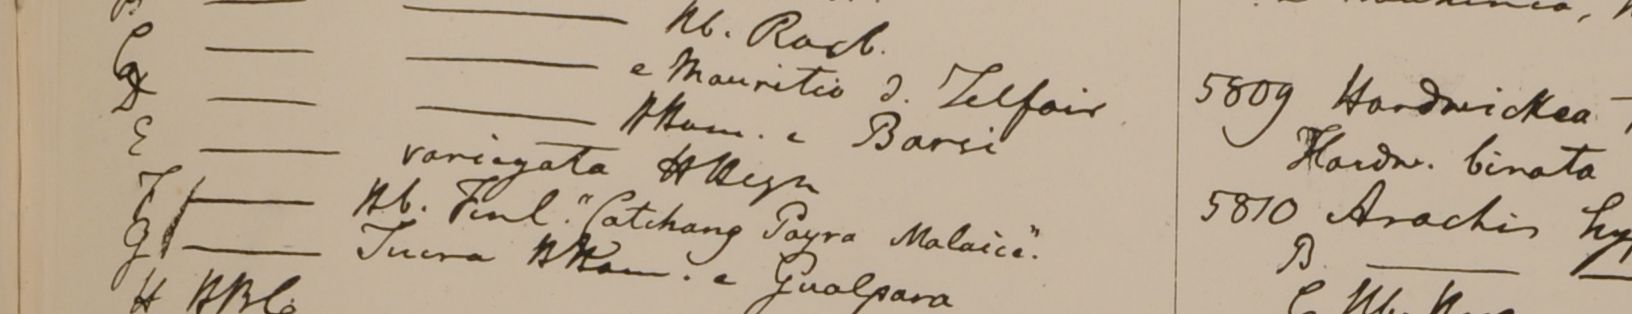 B —— —— Hb. Roxb.
C —— —— e Mauritio d. Telfair
D —— —— HHam. e Barsi
E —— variegata HHeyn
F —— Hb. Finl. "Catchang Payra Malaice".
G —— HHam. e Gualpara
H HBC
5809 Hardwickea
Hardw. binata
5810 Arachis hyp
B ——
C Hb.